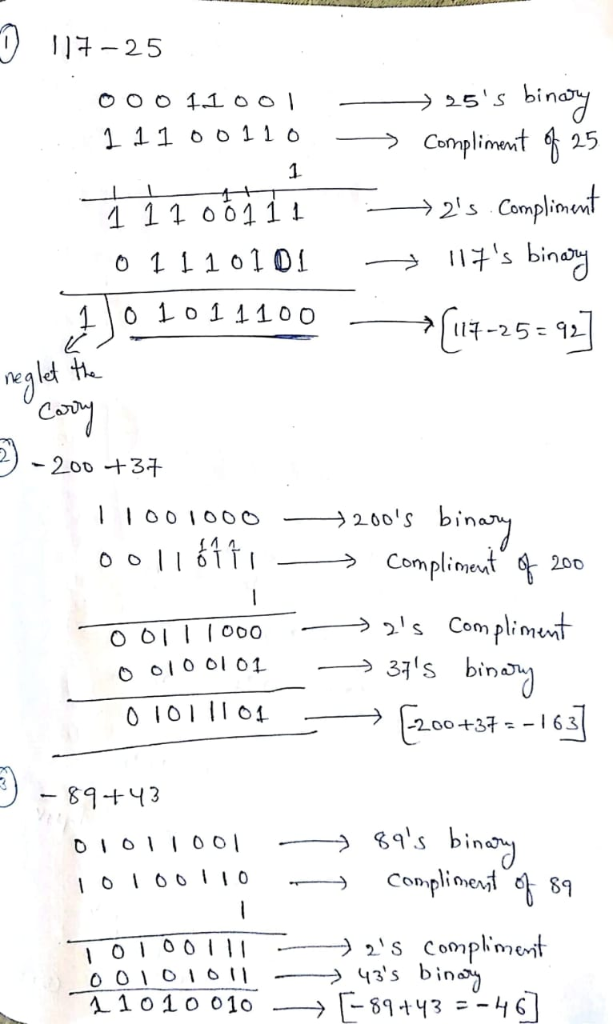 ① 117-25
00011001 → 25's binary
11100110 → Compliment of 25
1
11100111 → 2's Compliment
01110101 → 117's binary
1)01011100 → [117-25=92]
neglet the
Carry
② -200+37
11001000 → 200's binary
00110111 → Compliment of 200
1
00111000 → 2's Compliment
00100101 → 37's binary
01011101 → [-200+37=-163]
③ -89+43
01011001 → 89's binary
10100110 → Compliment of 89
1
10100111 → 2's Compliment
00101011 → 43's binary
11010010 → [-89+43=-46]